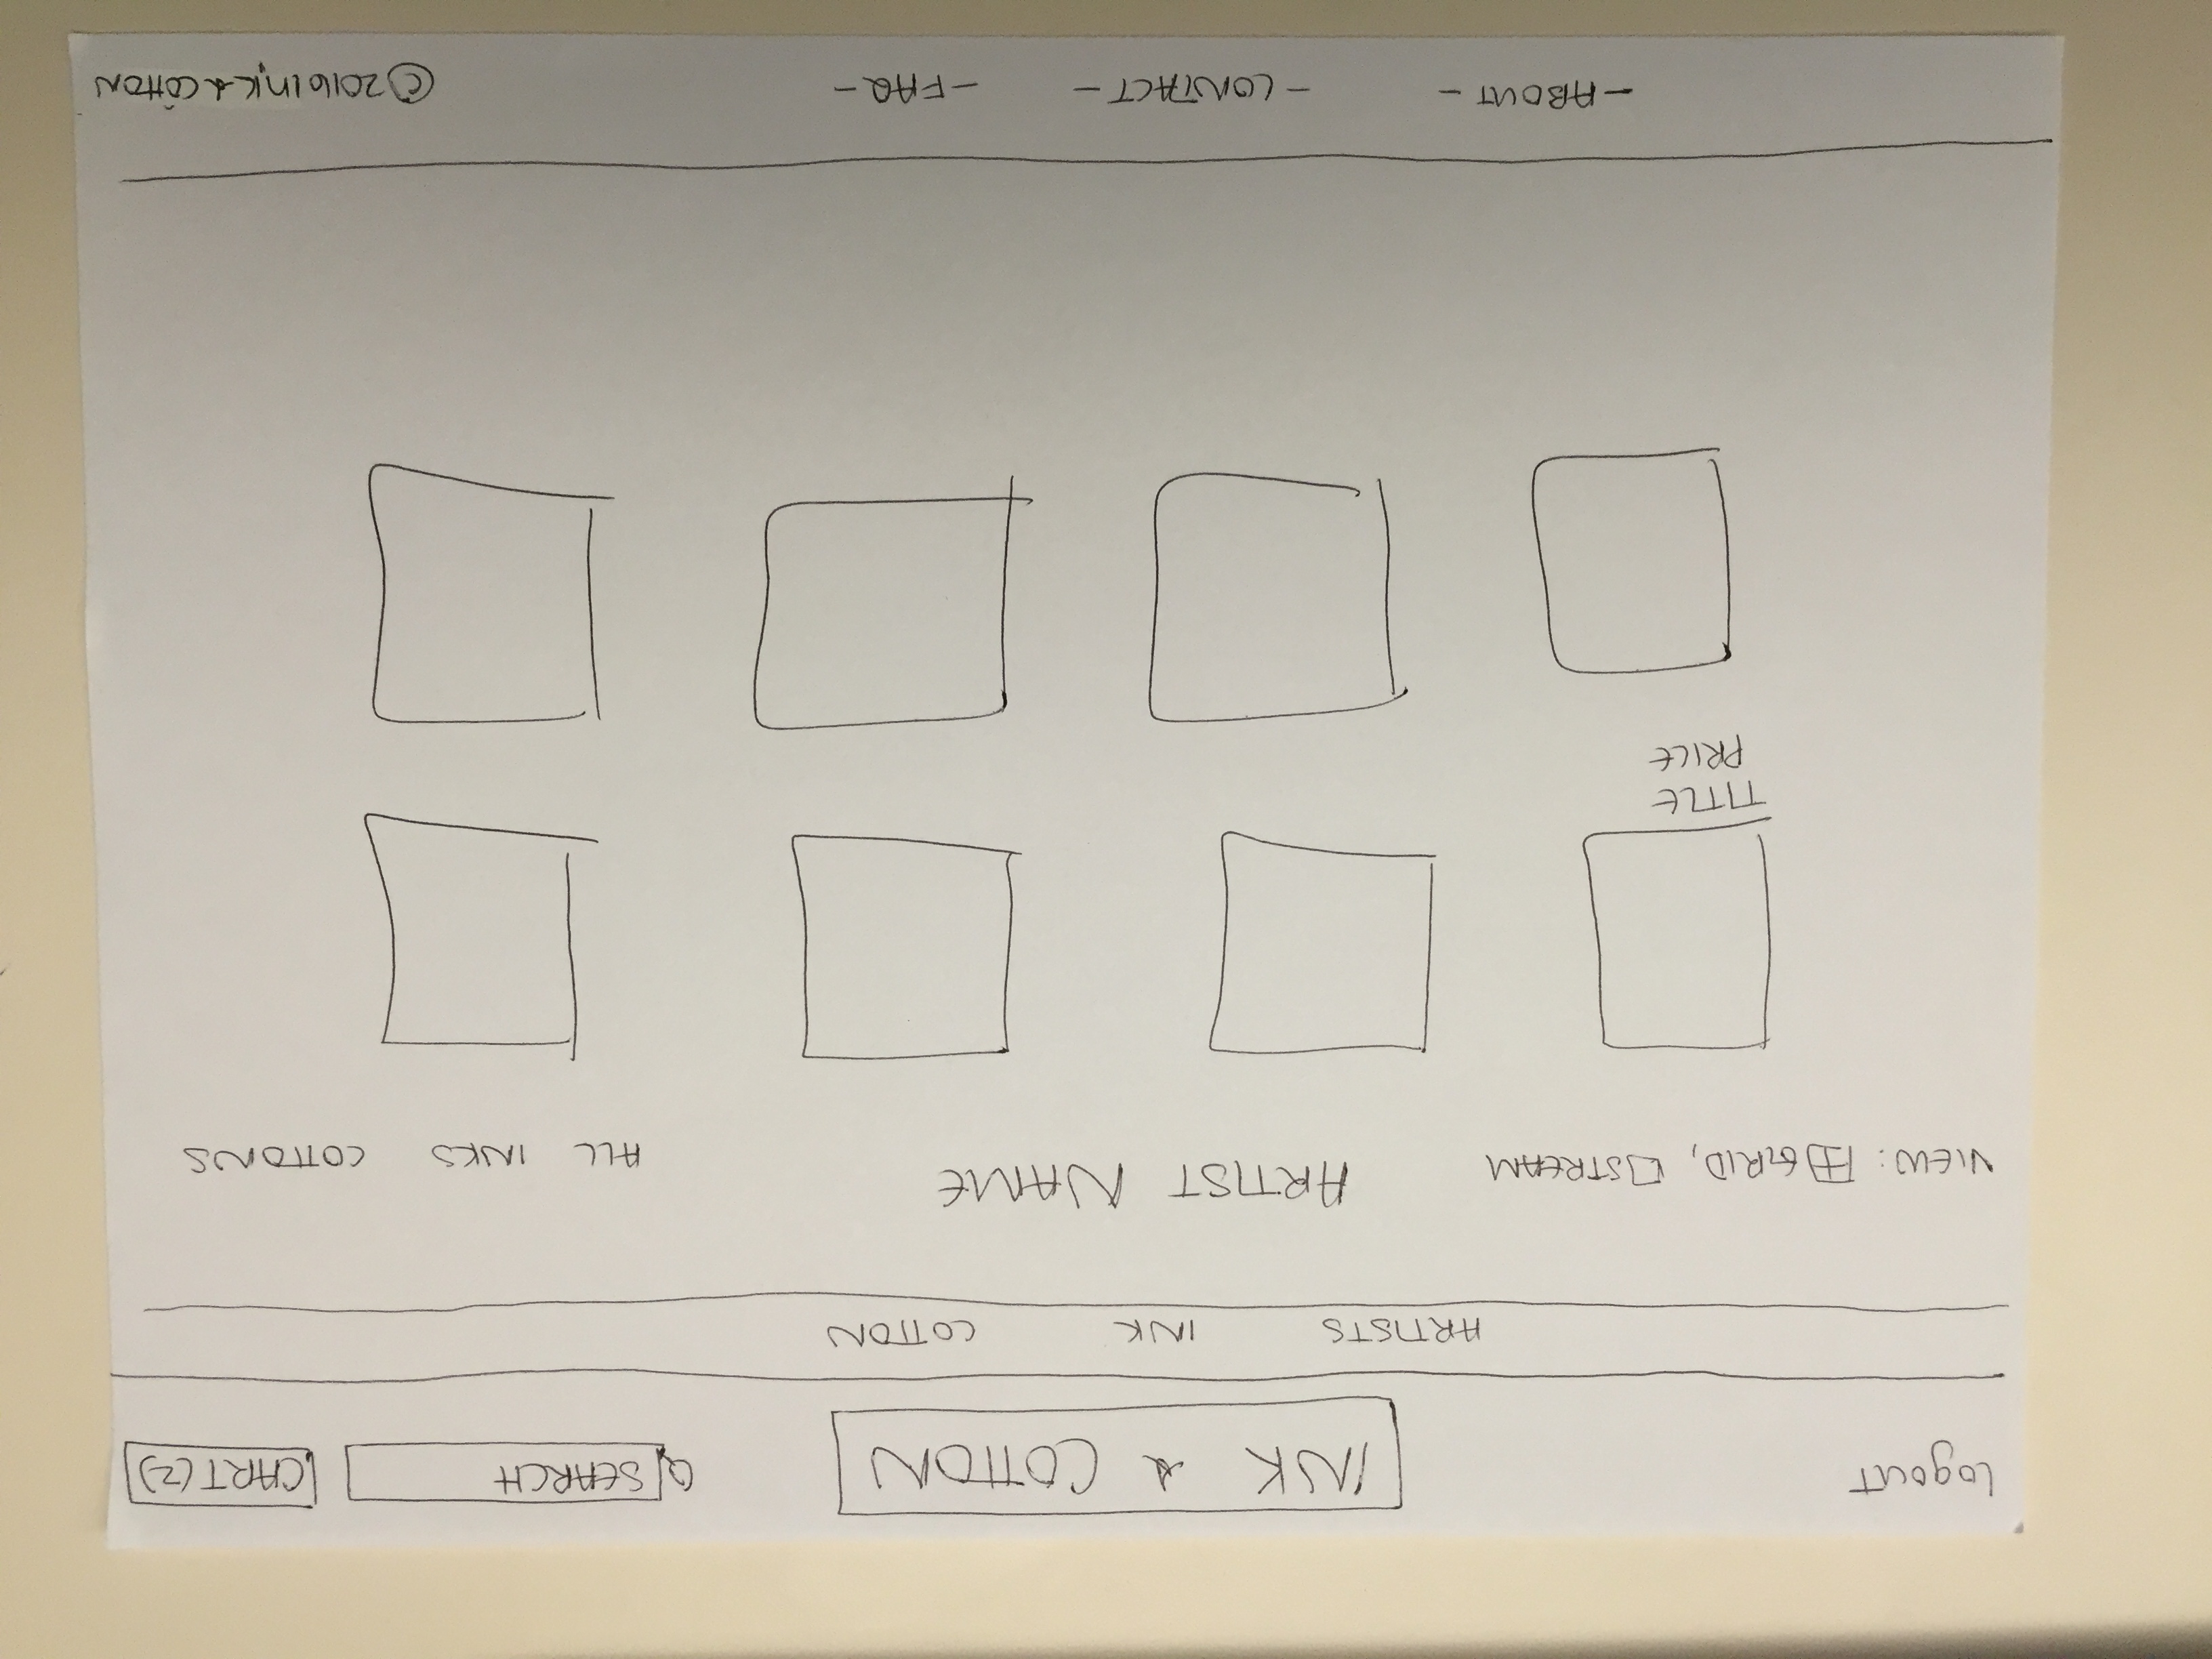 Logout
INK & COTTON
SEARCH
CART(2)
ARTISTS INK COTTON
VIEW: GRID, STREAM
ARTIST NAME
ALL INKS COTTONS
TITLE
PRICE
-ABOUT- -CONTACT- -FAQ-
©2016 Ink & COTTON